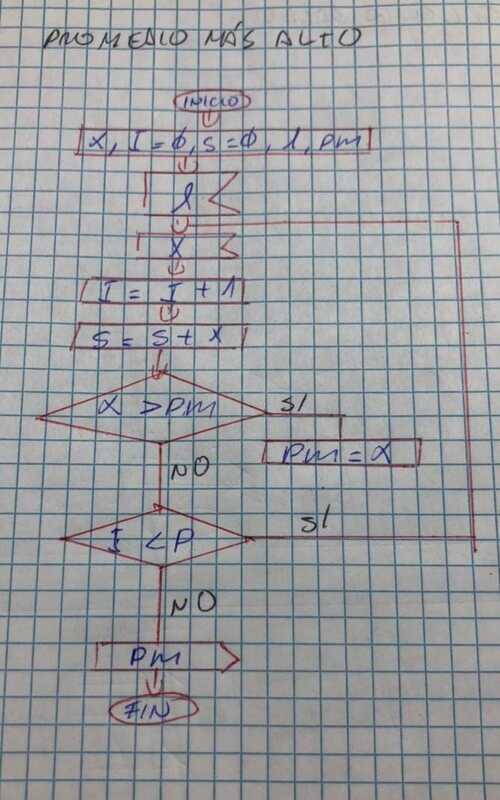 PROMEDIO MÁS ALTO
INICIO
X, I=0, S=0, l, pm
l
X
I = I + 1
S = S + X
X > pm
SI
pm = X
NO
I < P
SI
NO
pm
FIN